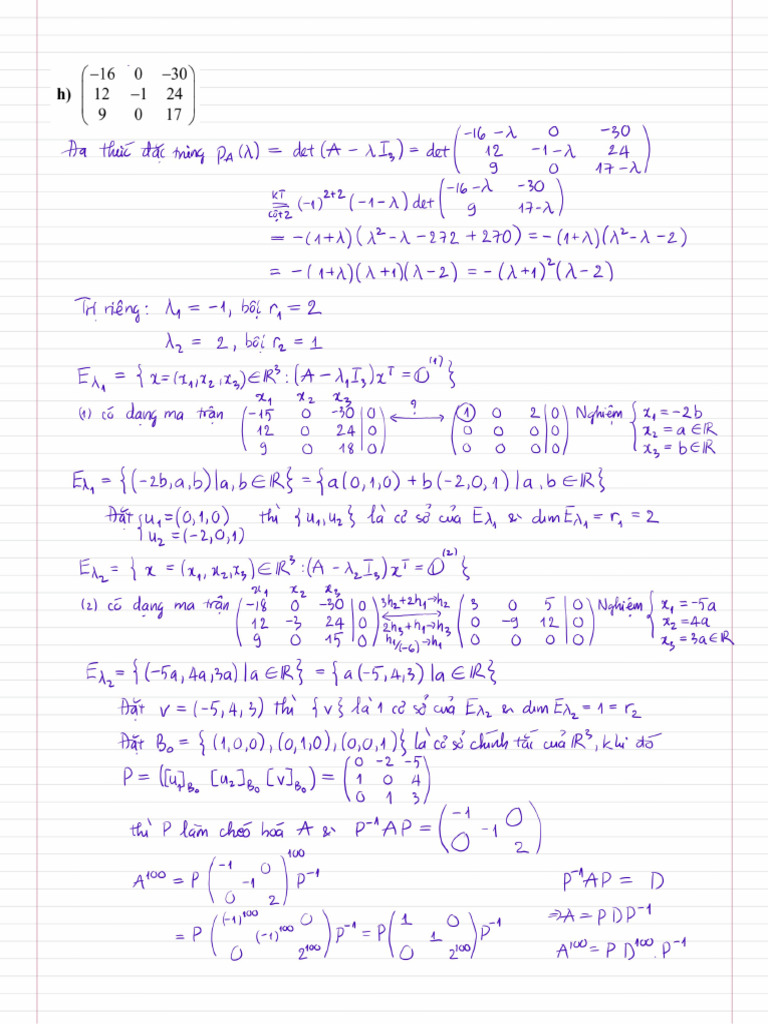 h) (−16 0 −30
12 −1 24
9 0 17)
Đa thức đặc trưng p_A(λ) = det(A − λI₃) = det (−16−λ 0 −30
12 −1−λ 24
9 0 17−λ)
KT cột 2 = (−1)²⁺² (−1−λ) det (−16−λ −30
9 17−λ)
= −(1+λ)(λ² − λ − 272 + 270) = −(1+λ)(λ² − λ − 2)
= −(1+λ)(λ+1)(λ−2) = −(λ+1)²(λ−2)
Trị riêng: λ₁ = −1, bội r₁ = 2
λ₂ = 2, bội r₂ = 1
E_λ₁ = { x = (x₁, x₂, x₃) ∈ ℝ³ : (A − λ₁I₃)xᵀ = O ⁽¹⁾ }
x₁ x₂ x₃
(1) có dạng ma trận (−15 0 −30 | 0
12 0 24 | 0
9 0 18 | 0) ⟷ (1 0 2 | 0
0 0 0 | 0
0 0 0 | 0) Nghiệm { x₁ = −2b
x₂ = a ∈ ℝ
x₃ = b ∈ ℝ
E_λ₁ = {(−2b, a, b) | a, b ∈ ℝ} = {a(0,1,0) + b(−2,0,1) | a, b ∈ ℝ}
Đặt { u₁ = (0,1,0) thì {u₁, u₂} là cơ sở của E_λ₁ & dim E_λ₁ = r₁ = 2
u₂ = (−2,0,1)
E_λ₂ = { x = (x₁, x₂, x₃) ∈ ℝ³ : (A − λ₂I₃)xᵀ = O ⁽²⁾ }
x₁ x₂ x₃
(2) có dạng ma trận (−18 0 −30 | 0
12 −3 24 | 0
9 0 15 | 0) 3h₂+2h₁→h₂
2h₃+h₁→h₃
h₁/(−6)→h₁ (3 0 5 | 0
0 −9 12 | 0
0 0 0 | 0) Nghiệm { x₁ = −5a
x₂ = 4a
x₃ = 3a ∈ ℝ
E_λ₂ = {(−5a, 4a, 3a) | a ∈ ℝ} = {a(−5,4,3) | a ∈ ℝ}
Đặt v = (−5,4,3) thì {v} là 1 cơ sở của E_λ₂ & dim E_λ₂ = 1 = r₂
Đặt B₀ = {(1,0,0), (0,1,0), (0,0,1)} là cơ sở chính tắc của ℝ³, khi đó
P = ([u₁]_B₀ [u₂]_B₀ [v]_B₀) = (0 −2 −5
1 0 4
0 1 3)
thì P làm chéo hoá A & P⁻¹AP = (−1 0
−1
0 2)
A¹⁰⁰ = P (−1 0
−1
0 2)¹⁰⁰ P⁻¹
= P ((−1)¹⁰⁰ 0
(−1)¹⁰⁰
0 2¹⁰⁰) P⁻¹ = P (1 0
1
0 2¹⁰⁰) P⁻¹
P⁻¹AP = D
⇒ A = PDP⁻¹
A¹⁰⁰ = P D¹⁰⁰ . P⁻¹